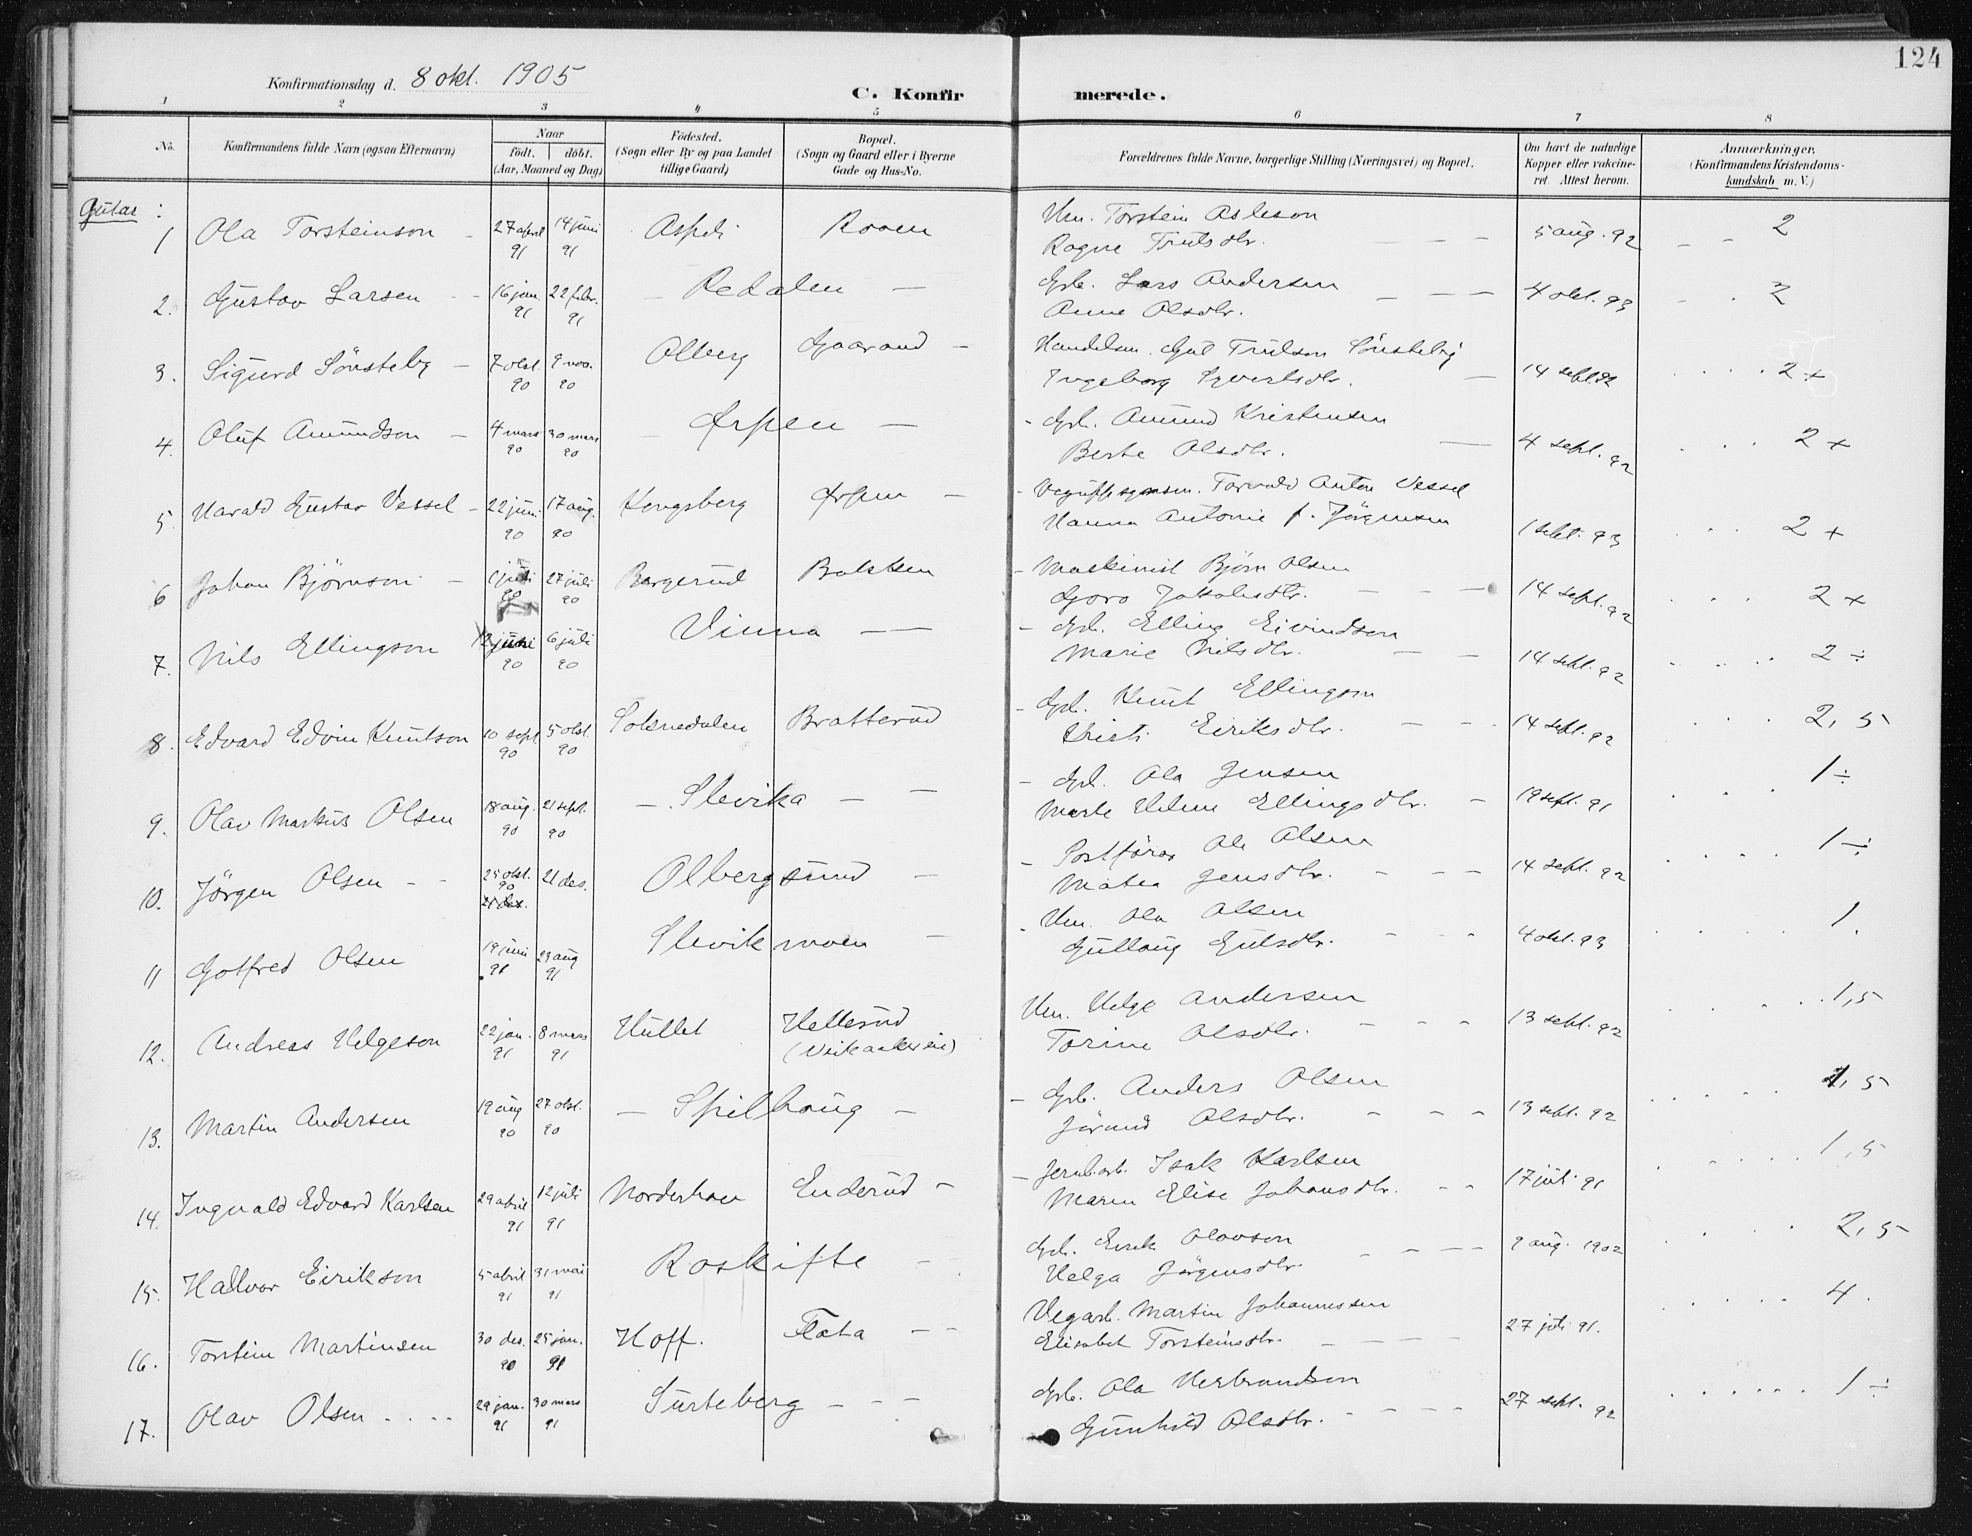 124
Konfirmationsdag d. 8 okt. 1905
C. Konfirmerede.
1 2 3 4 5 6 7 8
No. Konfirmandens fulde Navn (ogsaa Efternavn) Naar födt. döbt. (Aar, Maaned og Dag) Födested. (Sogn eller By og paa Landet tillige Gaard) Bopæl. (Sogn og Gaard eller i Byerne Gade og Hus-No. Forældrenes fulde Navne, borgerlige Stilling (Næringsvei) og Bopæl. Om havt de naturlige Kopper eller vakcineret. Attest herom. Anmærkninger. (Konfirmandens Kristendomskundskab m. V.)
Gutar:
1 Ola Torsteinson 27 april 91 14 juni 91 Aspeli Rooen Um. Torstein Asleson 5 aug. 92 2
Ragne Trulsdtr.
2. Gustav Larsen 16 jan. 91 22 febr. 91 Redalen Gb. Lars Andersen 4 okt. 93 2
Anne Olsdtr.
3. Sigurd Sönsteby 7 okt. 90 9 nov. 90 Olberg Gaarand Handelsm. Gul Trulson Sönsteby 14 sept. 92 2 +
Ingeborg Syvertsdtr.
4. Oluf Amundson 4 mars 90 30 mars 90 Ørpen Gb. Amund Kristensen 4 sept. 92 2 +
Berte Olsdtr.
5. Harald Gustav Vessel 22 juni 90 17 aug. 90 Kongsberg Ørpen Torvald Anton Vessel 1 sept. 93 2 +
Hanna Antonie f. Jörgensen
6 Johan Björnson 1 juli 90 27 juli 90 Bergerud Bakken Maskinist Björn Olsen 14 sept. 92 2 +
Goro Jakobsdtr.
7. Nils Ellingson 12 juni 90 6 juli 90 Vinna Gb. Elling Eivindson 14 sept. 92 2 ÷
Marie Nilsdtr.
8. Edvard Edvin Knutson 10 sept 90 5 okt 90 Soknedalen Bratterud Gb. Knut Ellingson 14 sept. 92 2,5
Kristi Eiriksdtr.
9. Olav Markus Olsen 18 aug. 90 21 sept. 90 Slevika Gb. Ola Jensen 19 sept. 91 1 ÷
Marte Helene Ellingsdtr.
10. Jörgen Olsen 25 okt. 90 21 des. Olbergsund Postförar Ole Olsen 14 sept. 92 1 ÷
21 des. Matea Jensdtr.
11 Gotfred Olsen 19 juni 91 23 aug 91 Slevikmoen Um. Ola Olsen 4 okt. 93 1.
Gullaug Gulsdtr.
12. Andreas Helgeson 22 jan. 91 8 mars 91 Hullet Hellerud Um. Helge Andersen 13 sept. 92 1,5
Torine Olsdtr.
13. Martin Andersen 19 aug 90 27 okt. 90 Spilhaug Gb. Anders Olsen 13 sept. 92 1,5
Jörand Olsdtr.
14. Ingvald Edvard Karlsen 29 april 91 12 juli 91 Norderhov Enderud Jernb.arb. Isak Karlsen 17 juli 91 1,5
Maren Elise Johansdtr.
15. Hallvor Eirikson 5 april 91 31 mai 91 Roskifte Gb. Eirik Olavson 9 aug. 1902 2,5
Helga Jörgensdtr.
16. Torstein Martinsen 30 des. 90 25 jan. 91 Hoff. Flata Vegarb. Martin Johannessen 27 juli 91. 4.
Elisabet Torsteinsdtr.
17. Olav Olsen 29 jan. 91 30 mars 91 Surteberg Gb. Ola Herbrandson 27 sept. 92 1 ÷
Gunhild Olsdtr.